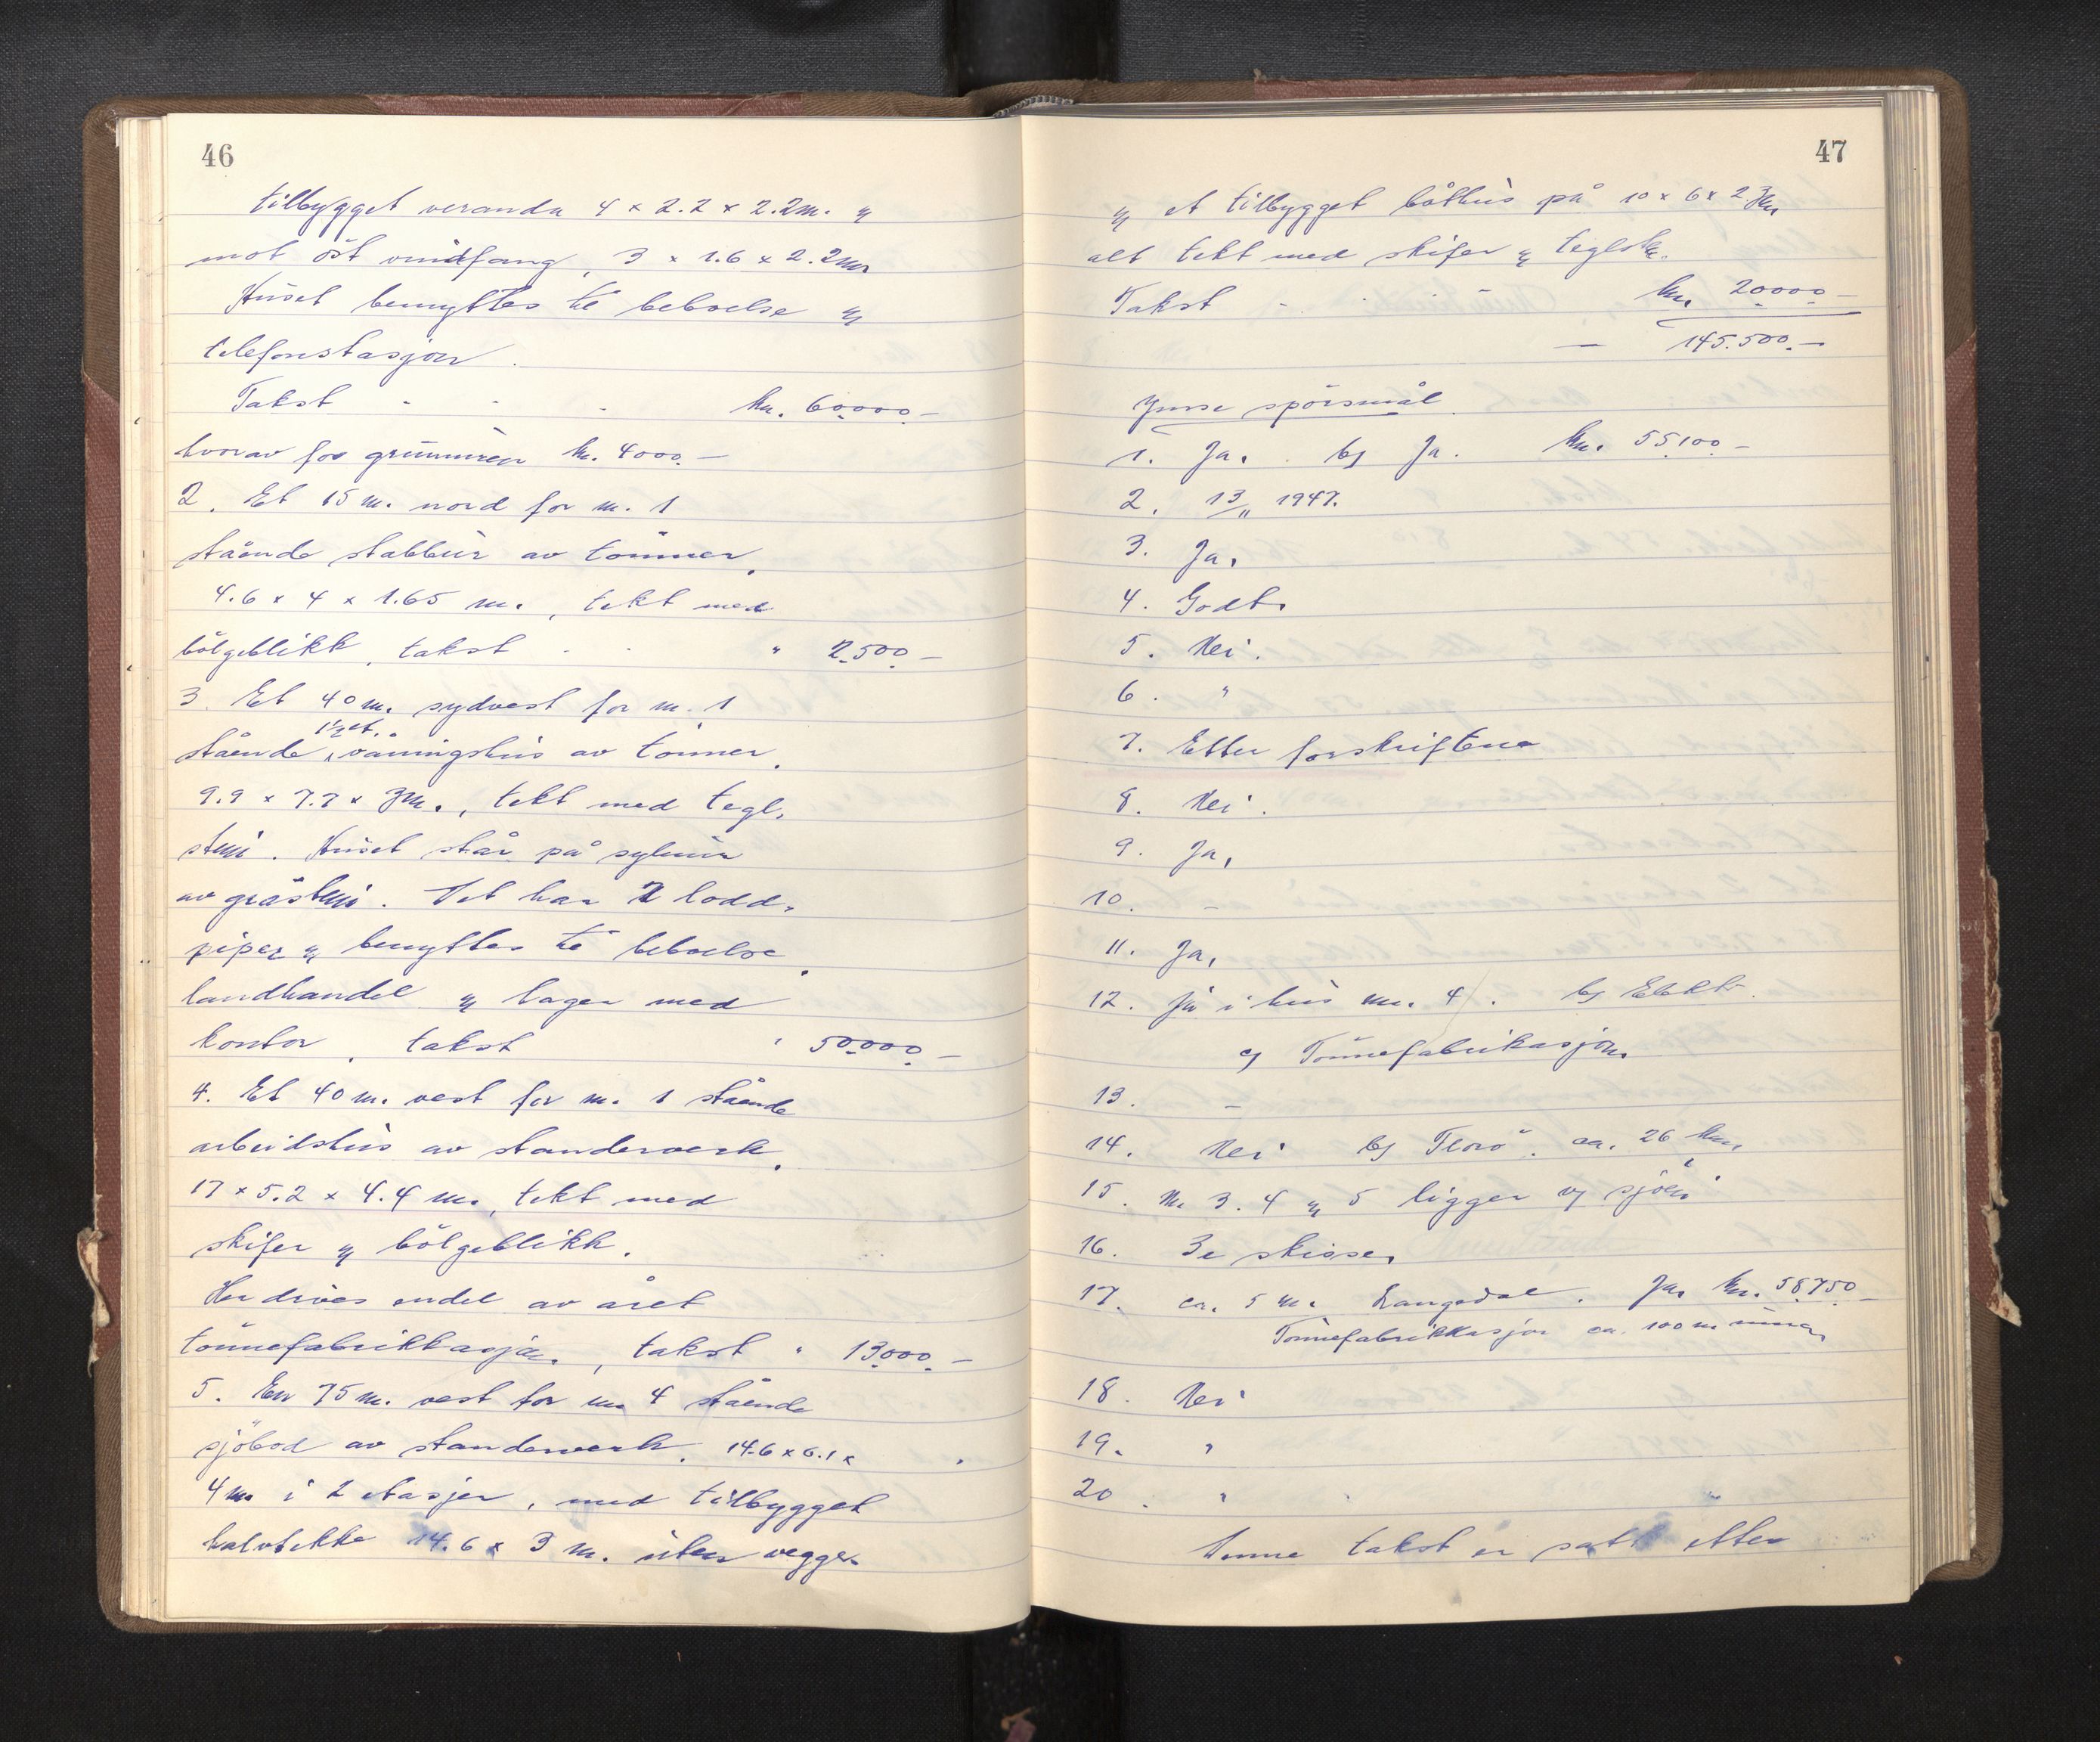 46
tilbygget veranda 4 x 2.2 x 2.2m. og
mot øst vindfang, 3 x 1.6 x 2.2m
Huset benyttes til beboelse og
telefonstasjon.
Takst - - - kr. 60000.-
hvorav for grunmuren kr. 4000.-
2. Et 15 m. nord for nr. 1
stående stabbur av tømmer,
4.6 x 4 x 1.65 m., tekt med
bølgeblikk, takst - - " 2.500.-
3. Et 40 m. sydvest for nr. 1
1½ et.
stående våningshus av tømmer,
9.9 x 7.7 x 3m., tekt med tegl-
stein. Huset står på sylmur
av gråstein. Det har 2 lodd-
piper og benyttes til beboelse,
landhandel og lager med
kontor, takst " 50.000.-
4. Et 40 m. vest for nr. 1 stående
arbeidshus av standerverk,
17 x 5.2 x 4.4 m., tekt med
skifer og bølgeblikk.
Her drives endel av året
tønnefabrikkasjon, takst " 13.000.-
5. En 75 m. vest for nr. 4 stående
sjøbod av standerverk, 14.6 x 6.1 x
4 m. i 2 etasjer, med tilbygget
halvtekke 14.6 x 3 m. uten vegger
47
og et tilbygget båthus på 10 x 6 x 2.3m
alt tekt med skifer og teglst.
Takst - - - kr. 20000.-
- 145.500.-
Ymse spørsmål
1. Ja. b) Ja. kr. 55.100.-
2. 13/11 1947.
3. Ja.
4. Godt.
5. Nei.
6. "
7. Etter forskriftene
8. Nei.
9. Ja.
10. -
11. Ja.
12. Ja i hus nr. 4. b) Elektr.
c) Tønnefabrikasjon.
13. -
14. Nei b) Florø. ca. 26 km.
15. Nr. 3. 4 og 5 ligger v/ sjøen
16. Se skisse.
17. ca. 5 m. Langedal. Ja. kr. 58.750.-
Tønnefabrikkasjon ca. 100 m unna.
18. Nei
19. "
20. "
Denne takst er satt etter